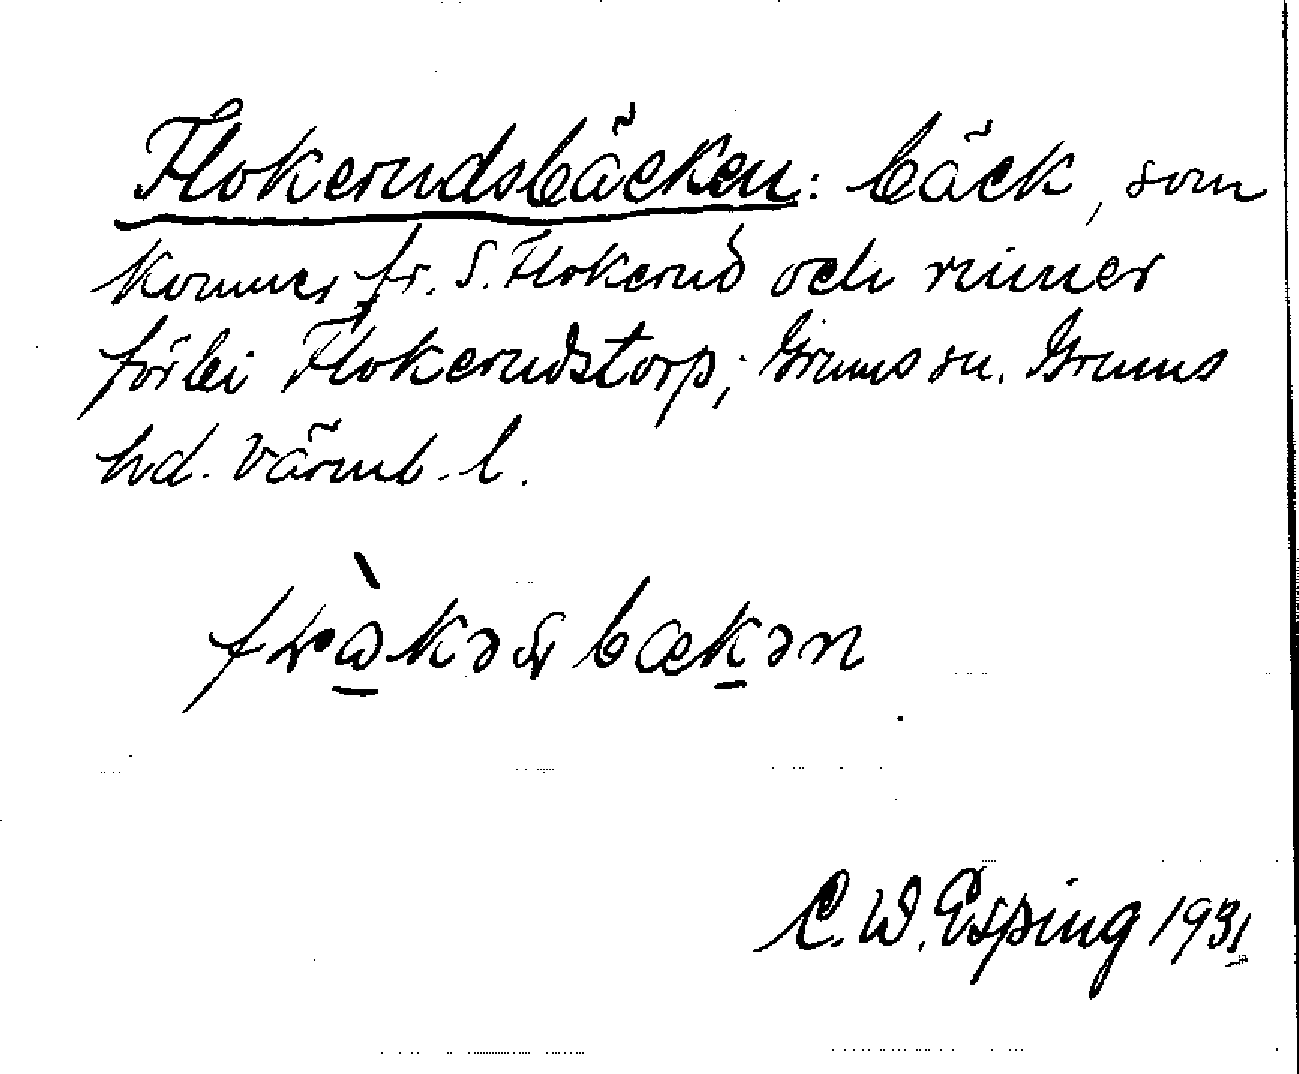 Flokerudsbäcken: bäck, som
kommer fr. S. Flokerud och rinner
förbi Flokerudstorp; Grums sn. Grums
hd. Värml. l.
C. W. Esping 1931